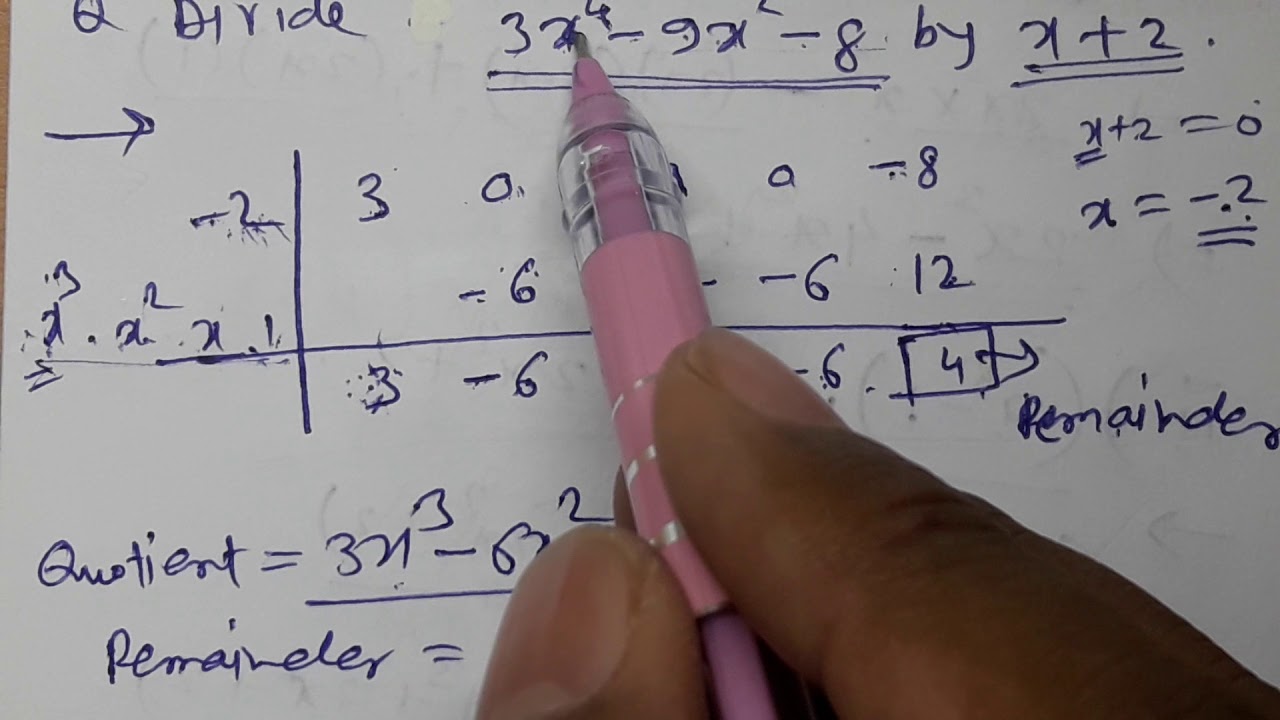 Q Divide 3x⁴ - 9x² - 8 by x + 2 .
x + 2 = 0
-2 3 0 0 -8
x = -2
-6 - -6 12
x³ x² x 1
3 -6 -6 4 →
Remainder
Quotient = 3x³ - 6x²
Remainder =